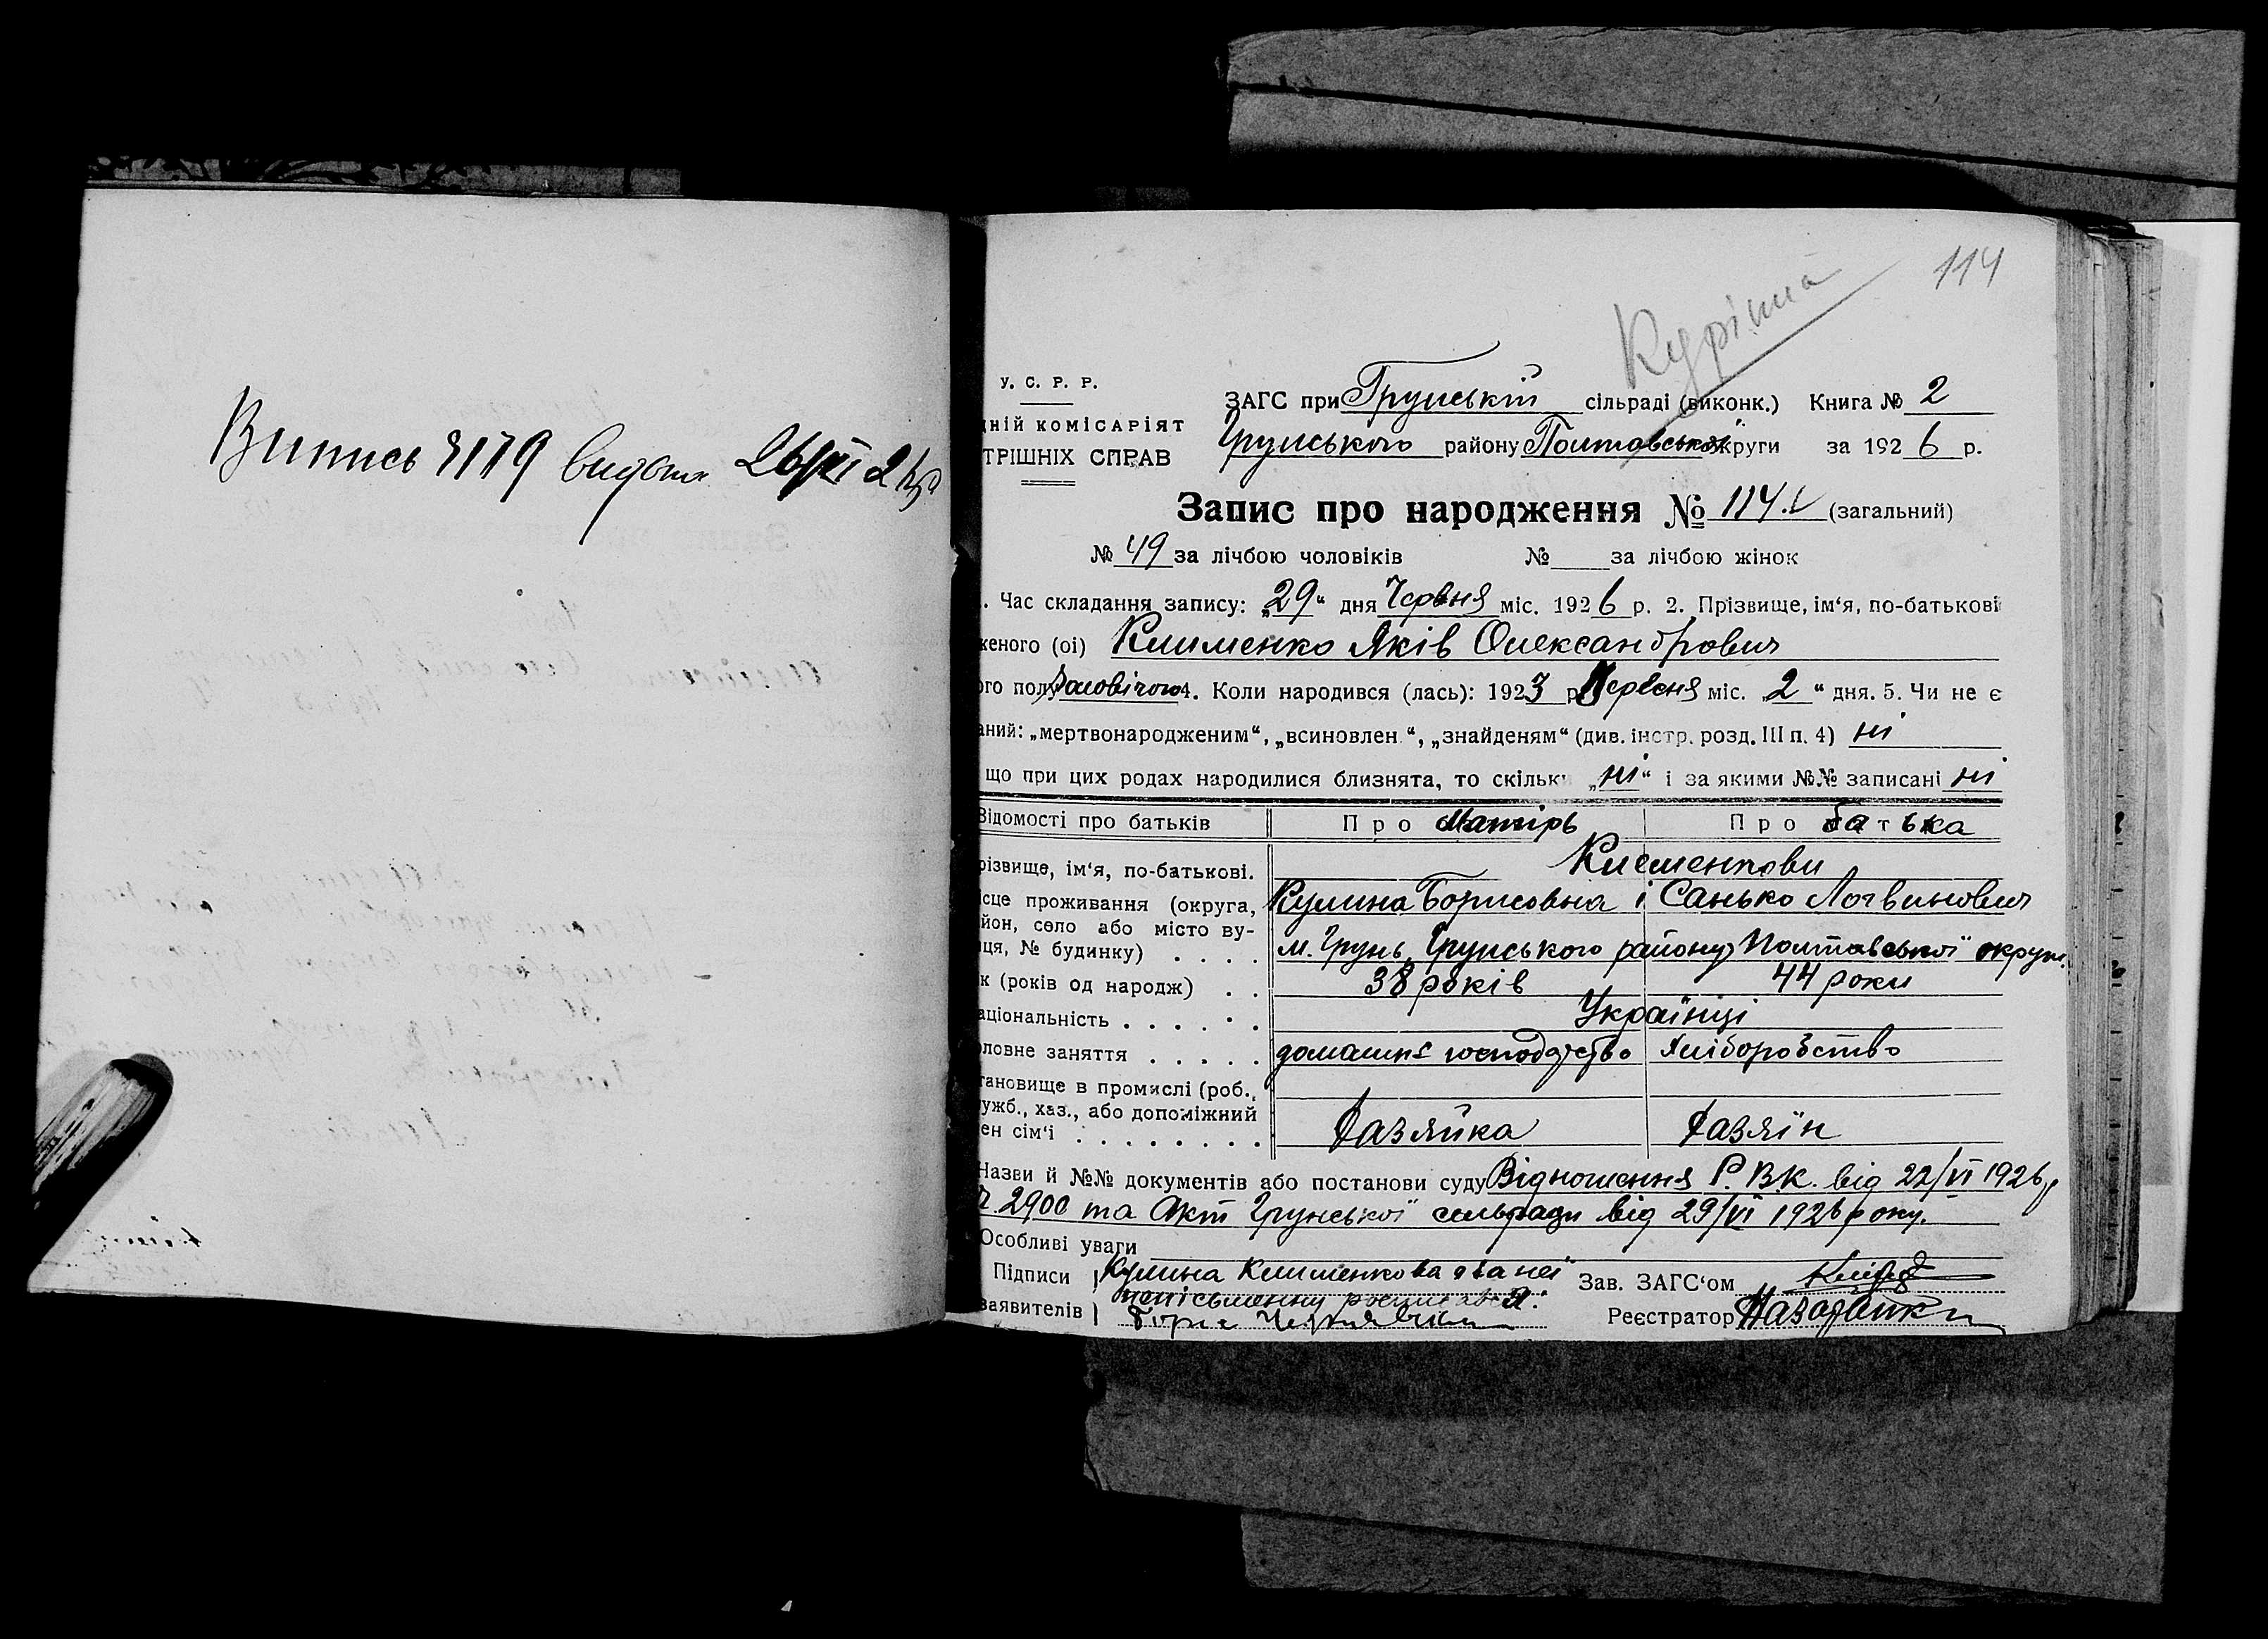 Випись №179 видана 26/XI 26р
114
У. С. Р. Р.
ЗАГС при Грунській сільраді (виконк.) Книга № 2
дній комісаріят
Грунського району Полтавської округи за 1926 р.
трішніх справ
Запис про народження № 114. (загальний)
№ 49 за лічбою чоловіків № за лічбою жінок
. Час складання запису: „29“ дня Червня міс. 1926 р. 2. Прізвище, ім‘я, по-батькові
женого (ої) Клименко Яків Олександрович
ого полу Чоловічого 4. Коли народився (лась): 1923 р. Червня міс. „2“ дня. 5. Чи не є
аний: „мертвонародженим“, „всиновлен.“, „знайденям“ (див. інстр. розд. III п. 4) ні
що при цих родах народилися близнята, то скільки „ні“ і за якими №№ записані ні
Відомості про батьків Про матірь Про батька
різвище, ім‘я, по-батькові. Клименкови
ісце проживання (округа, Кулина Борисовна і Санько Логвинович
йон, село або місто ву-
ця, № будинку) . . . . м. Грунь, Грунського району Полтавської округи.
к (років од народж) . . 38 років 44 роки
аціональність . . . . . . Українці
ловне заняття . . . . . домашнє господарство Хліборобство
тановище в промислі (роб.,
ужб., хаз., або допоміжний
ен сім‘ї . . . . . . . . Хазяйка Хазяїн
Назви й №№ документів або постанови суду Відношення Р.В.К. від 22/VI 1926 р
ч. 2900 та Акт Грунської сільради від 29/VI 1926 року.
Особливі уваги
Підписи Кулина Клименкова а за неї Зав. ЗАГС‘ом
неписьменну росписався:
заявителів Реєстратор